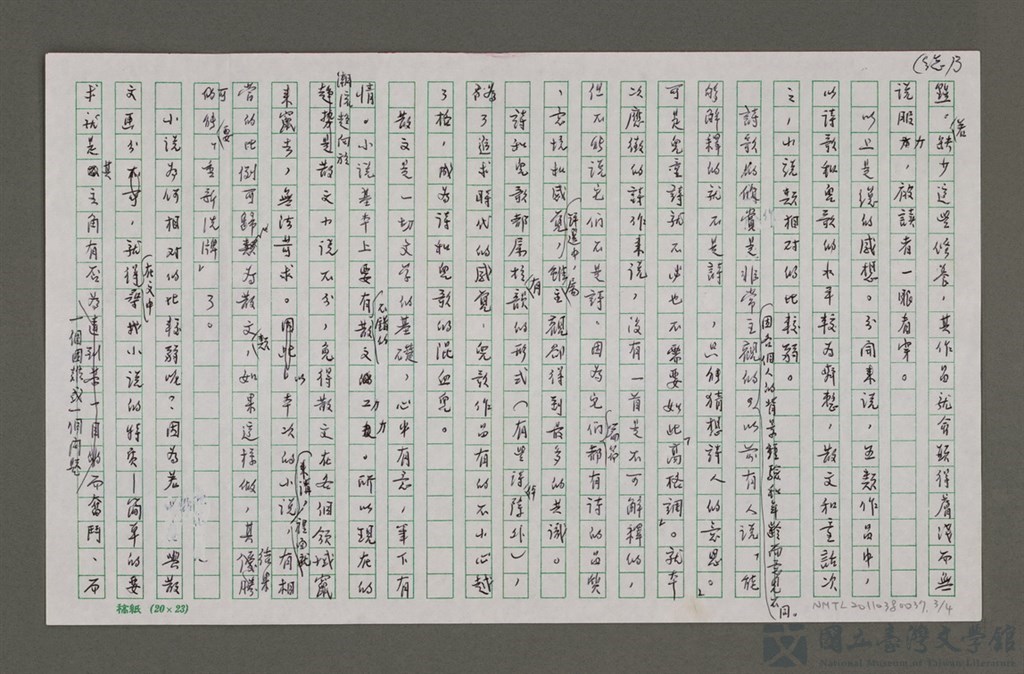 (総)3
藝。缺少這些修養,其作品就會顯得膚淺而無
說服力,啟讀者一眼看穿。
以上是総的感想。分開來說,五類作品中,
以詩歌和兒歌的水平較為齊整,散文和童話次
之,小說類相對的比較弱。
詩歌的欣賞是非常主觀的,因各個人的背景經驗和年齡而意見不同。以前有人說「能
夠解釋的就不是詩,只能猜想詩人的意思。」
可是兒童詩就不必也不需要如此「高格調」。就本
次應徵的詩作來說,沒有一首是不可解釋的,
但不能說它們不是詩。因為它們都有詩的品質
、意境和感寬,評選中,雖屬主觀卻得到最多的共識。
詩和兒歌都屬於有韻的形式(有些詩除外),
為了追求時代的感覺,兒歌作品有的不小心越
了格,成為詩和兒歌的混血兒。
散文是一切文學的基礎,心中有意,筆下有
情。小說基本上要有不錯的散文的功力。所以現在的
潮流趨向於
趨勢是散文小說不分,免得散文在各個領域竄
來竄去,無法苛求。因此,以本次的小說類來講,裡面就有相
當的比例可歸類為散文,如果這樣做,其優勝
的可能要「重新洗牌」了。
小說為何相對的比較弱呢?因為若與散
文區分,就得在文中尋找小說的特質—簡單的要
求就是其主角有否為達到某一目的而奮鬥、而
一個困難或一個問題
稿紙 (20×23)
NMTL20110380037, 3/4
國立臺灣文學館
National Museum of Taiwan Literature